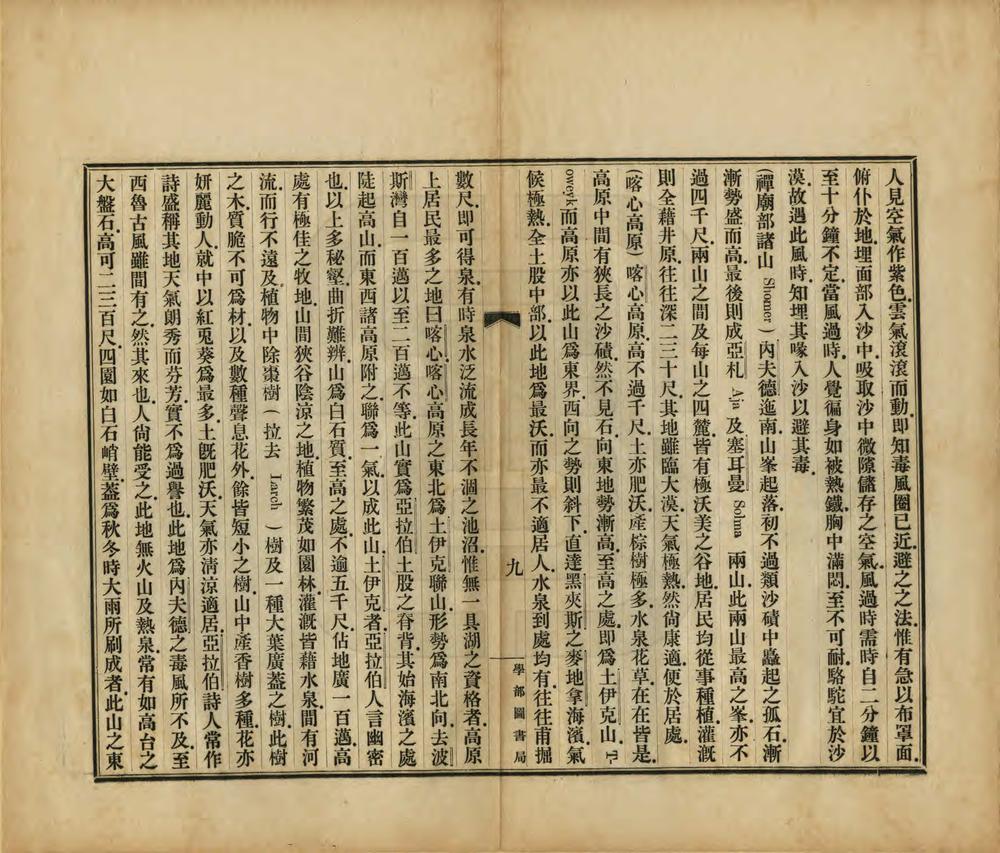 人見空氣作紫色雲氣滾滾而動卽知毒風圈已近避之之法惟有急以布罩面
俯仆於地埋面部入沙中吸取沙中微隙儲存之空氣風過時需時自二分鐘以
至十分鐘不定當風過時人覺徧身如被熱鐵胸中滿悶至不可耐駱駝宜於沙
漠故遇此風時知埋其喙入沙以避其毒
(禪廟部諸山 Shomer)內夫德迤南山峯起落初不過類沙磧中矗起之孤石漸
漸勢盛而高最後則成亞札 Aja 及塞耳曼 Solma 兩山此兩山最高之峯亦不
過四千尺兩山之間及每山之四麓皆有極沃美之谷地居民均從事種植灌漑
則全藉井原往往深二三十尺其地雖臨大漠天氣極熱然尙康適便於居處
(喀心高原)喀心高原高不過千尺土亦肥沃產棕樹極多水泉花草在在皆是
高原中間有狹長之沙磧然不見石向東地勢漸高至高之處卽爲土伊克山 T-
oweyk 而高原亦以此山爲東界西向之勢則斜下直達黑夾斯之麥地拿海濱氣
候極熱全土股中部以此地爲最沃而亦最不適居人水泉到處均有往往甫掘
九
學部圖書局
數尺卽可得泉有時泉水泛流成長年不涸之池沼惟無一具湖之資格者高原
上居民最多之地曰喀心喀心高原之東北爲土伊克聯山形勢爲南北向去波
斯灣自一百邁以至二百邁不等此山實爲亞拉伯土股之脊背其始海濱之處
陡起高山而東西諸高原附之聯爲一氣以成此山土伊克者亞拉伯人言幽密
也以上多秘壑曲折難辨山爲白石質至高之處不逾五千尺佔地廣一百邁高
處有極佳之牧地山間狹谷陰涼之地植物繁茂如園林灌漑皆藉水泉間有河
流而行不遠及植物中除棗樹(拉去 Larch)樹及一種大葉廣蓋之樹此樹
之木質脆不可爲材以及數種聲息花外餘皆短小之樹山中產香樹多種花亦
妍麗動人就中以紅兎葵爲最多土旣肥沃天氣亦清涼適居亞拉伯詩人常作
詩盛稱其地天氣朗秀而芬芳實不爲過譽也此地爲內夫德之毒風所不及至
西魯古風雖間有之然其來也人尙能受之此地無火山及熱泉常有如高台之
大盤石高可二三百尺四圍如白石峭壁蓋爲秋冬時大雨所刷成者此山之東